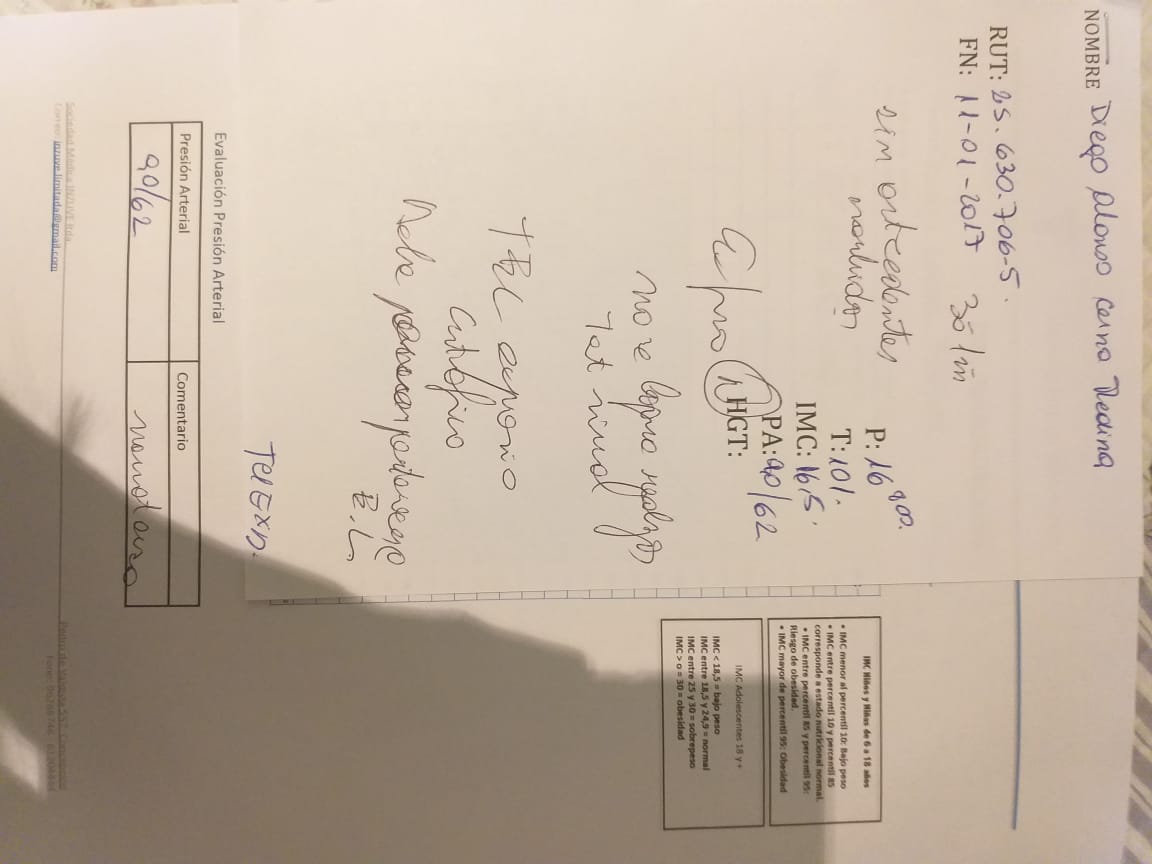 NOMBRE Diego Alonso Cerna Medina
RUT: 25.630.706-5.
FN: 11-01-2017 3a 1m
sin antecedentes
morbidos
P: 16 800.
T: 101.
IMC: 16,5.
PA: 90/62
HGT:
no se logra realizar
Test visual
TEL expansio
Eutrofico
Debe
E.L.
Tel EXD.
IMC Niños y Niñas de 6 a 18 años
• IMC menor al percentil 10: Bajo peso
• IMC entre percentil 10 y percentil 85
corresponde a estado nutricional normal.
• IMC entre percentil 85 y percentil 95:
Riesgo de obesidad.
• IMC mayor de percentil 95: Obesidad
IMC Adolescentes 18 y +
IMC < 18,5 = bajo peso
IMC entre 18,5 y 24,9 = normal
IMC entre 25 y 30 = sobrepeso
IMC > o = 30 = obesidad
Evaluación Presión Arterial
Presión Arterial Comentario
90/62 normotenso
Sociedad Médica INZUVE ltda.
Correo: inzuve.limitada@gmail.com
Pedro de Valdivia 557, Concepción